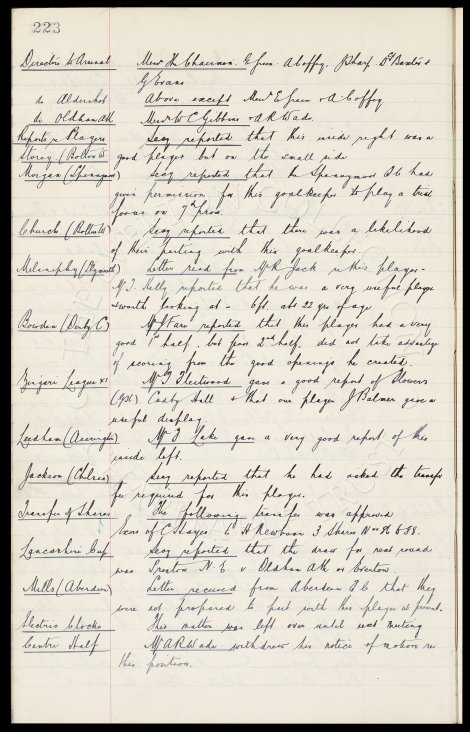 223
Directors to Arsenal Messrs The Chairman. E Green. A Coffey. J Sharp. Dr Baxter &
G Evans
do Aldershot Above except Messrs E Green & A Coffey
do Oldham Ath Messrs W C Gibbins & A R Wade.
Reports re Players Secy reported that this inside right was a
Storey (Bolton W) good player but on the small side
Morgan (Spennymoor) Secy reported that the Spennymoor F.C had
given permission for this goalkeeper to play a trial
for us on 7th prox.
Church (Bolton W) Secy reported that there was a likelihood
of their parting with this goalkeeper.
Melaniphy (Plymouth) Letter read from Mr R Jack re this player -
Mr T. Kelly reported that he was a very useful player
& worth looking at - 6ft. abt 22 yrs of age
Bowden (Derby C) Mr J Fare reported that this player had a very
good 1st half, but poor 2nd half, did not take advantage
of scoring from the good openings he created.
Zingari League XI Mr T Fleetwood gave a good report of Flowers
Casby Hall & that our player J Balmer gave a
useful display.
Leedham (Accrington) Mr J Lake gave a very good report of this
inside left.
Jackson (Chelsea) Secy reported that he had asked the transfer
fee required for this player.
Transfer of Shares The following transfer was approved
Exors of C Stayer. C H Newborn 3 Shares Nos 86 to 88.
Lancashire Cup Secy reported that the draw for next round
was Preston N. E v Oldham Ath or Everton.
Mills (Aberdeen) Letter received from Aberdeen F.C that they
were not prepared to part with this player at present.
Electric Clocks This matter was left over until next meeting
Centre Half Mr A R Wade withdrew his notice of motion re
this position.